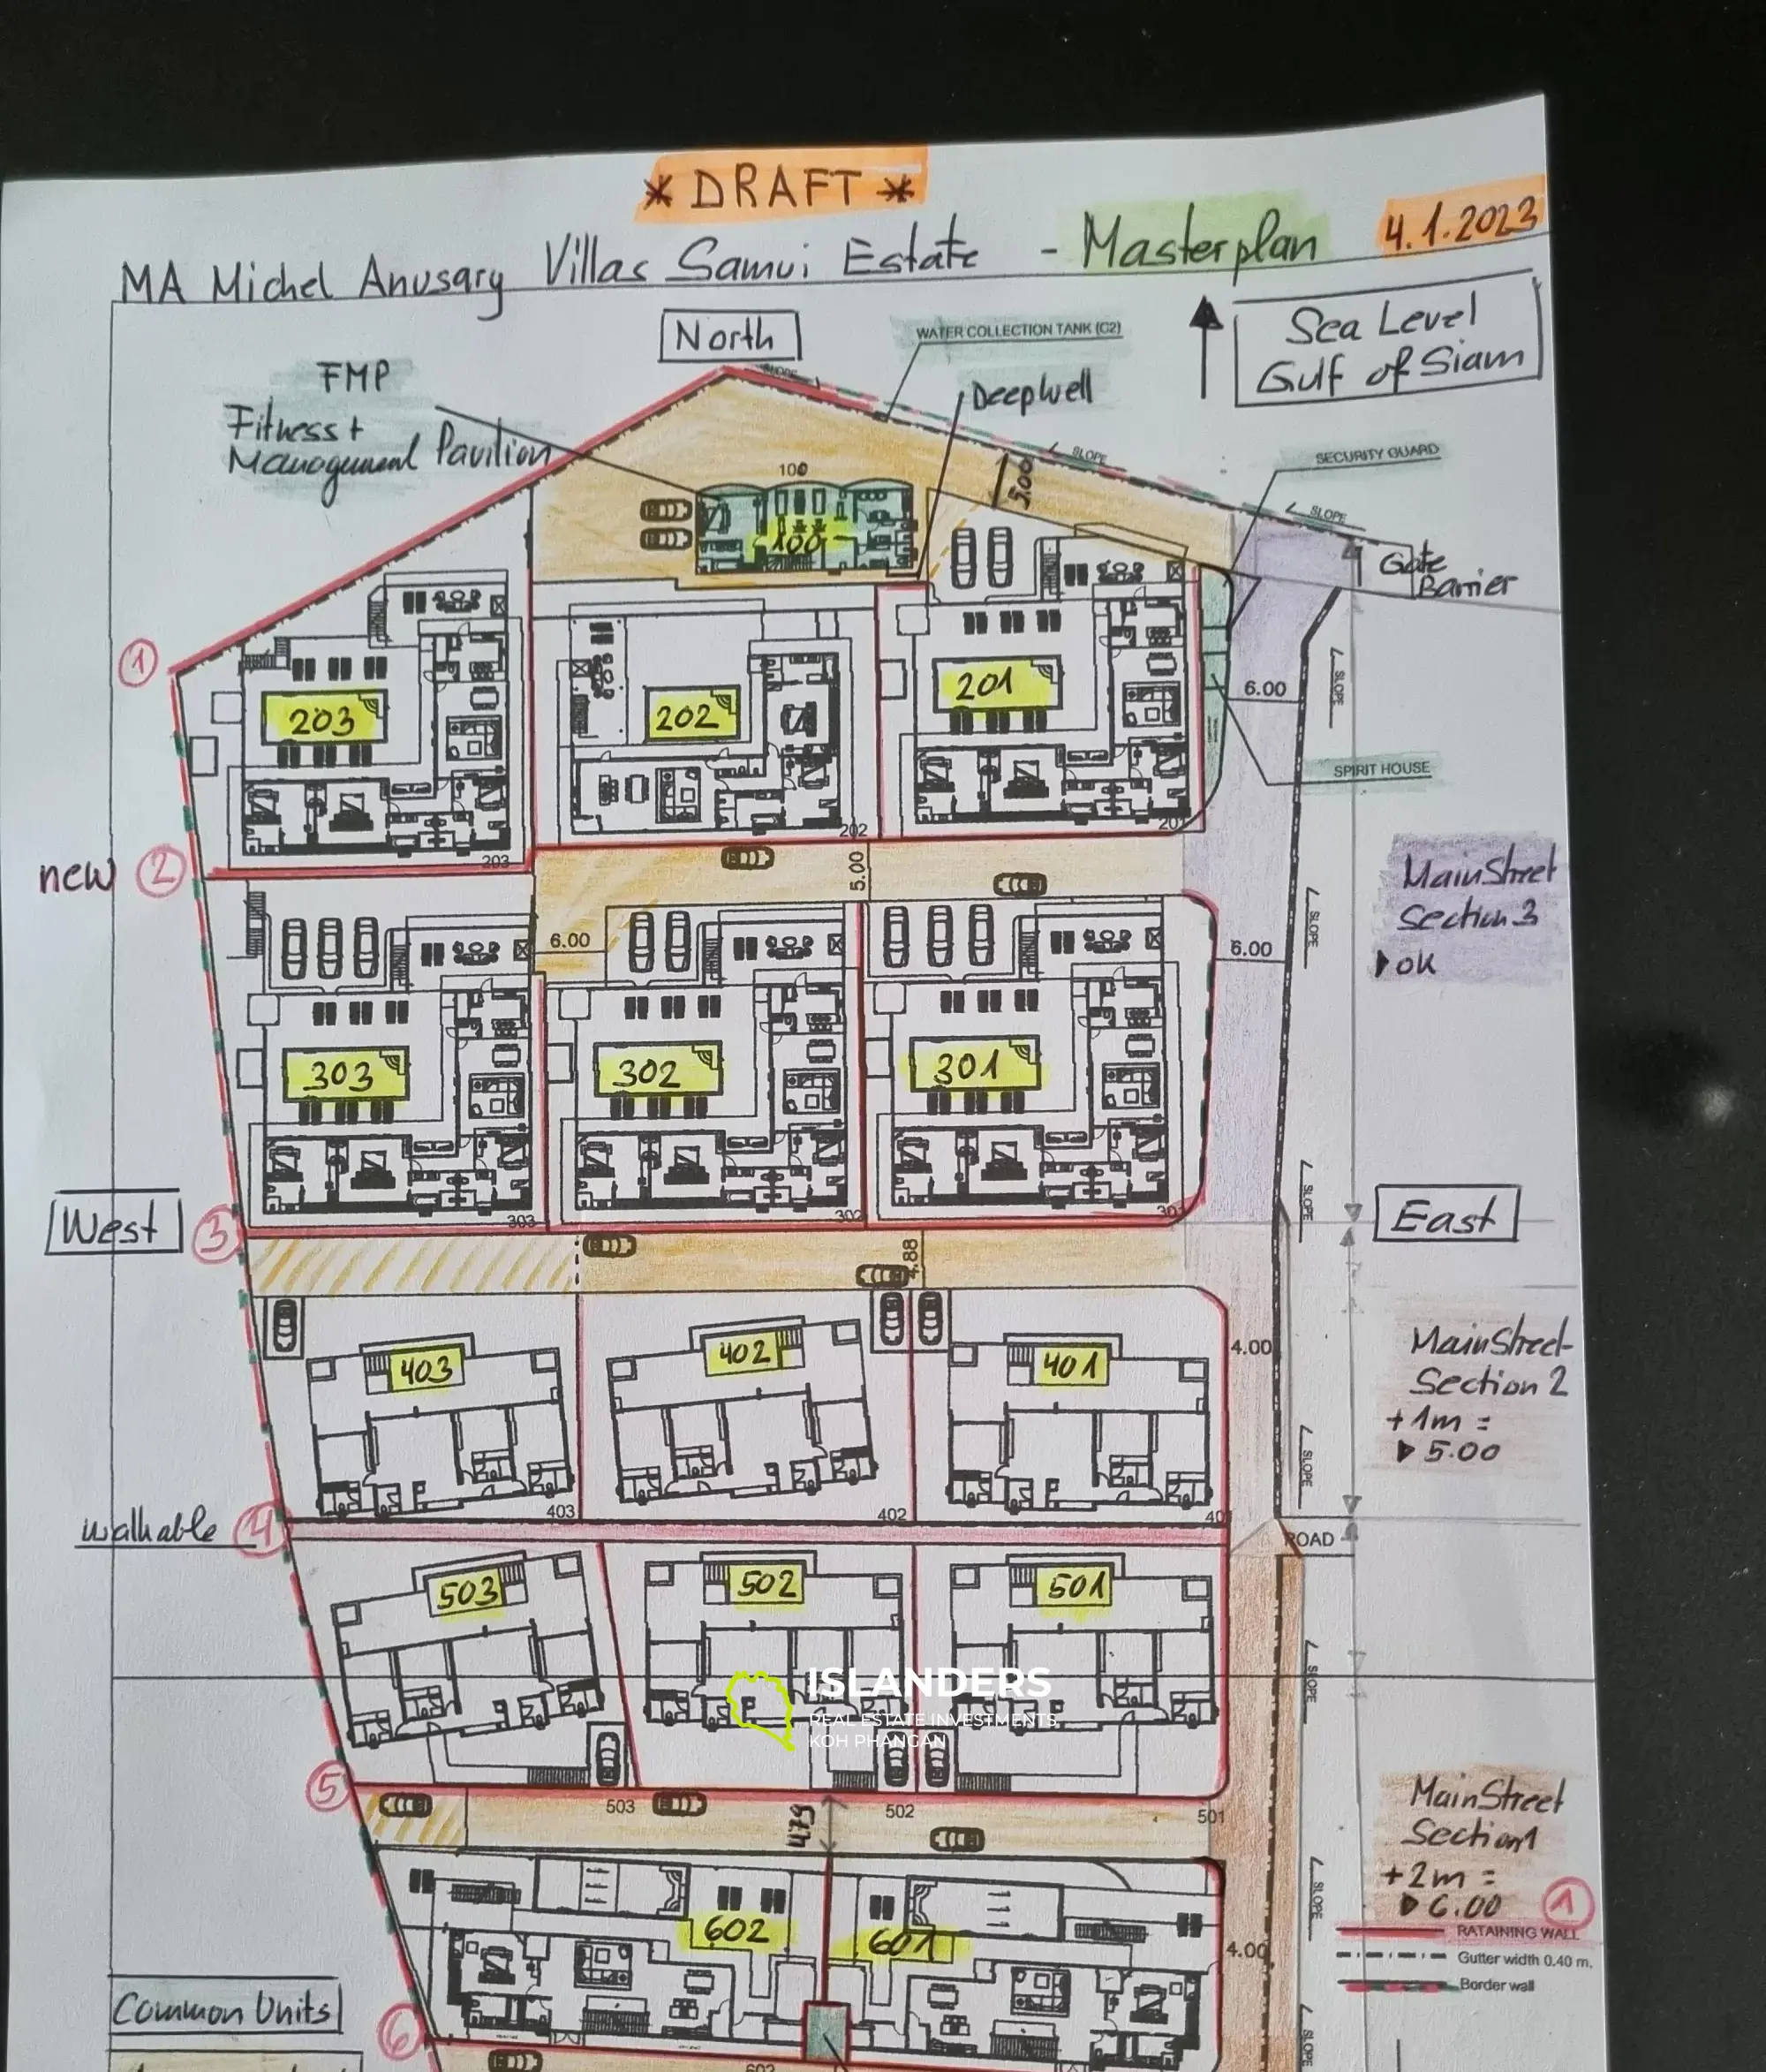 * DRAFT *
MA Michel Anusary Villas Samui Estate - Masterplan 4.1.2023
North
Sea Level
Gulf of Siam
WATER COLLECTION TANK (C2)
FMP
Fitness +
Management Pavilion
Deepwell
SLOPE
SLOPE
SECURITY GUARD
SLOPE
100
5.00
100
Gate
Barrier
1
203
202
201
6.00
SLOPE
SPIRIT HOUSE
202
201
203
new 2
5.00
MainStreet
Section 3
OK
6.00
6.00
SLOPE
303
302
301
West
3
303
302
301
SLOPE
East
4.88
403
402
401
4.00
MainStreet
Section 2
+1m =
5.00
SLOPE
403
402
40
walkable 4
ROAD
503
502
501
SLOPE
ISLANDERS
REAL ESTATE INVESTMENTS
KOH PHANGAN
5
503
4.79
502
501
MainStreet
Section 1
+2m =
6.00
1
SLOPE
602
601
4.00
RATAINING WALL
Gutter width 0.40 m.
Border wall
Common Units
6
SLOPE
602